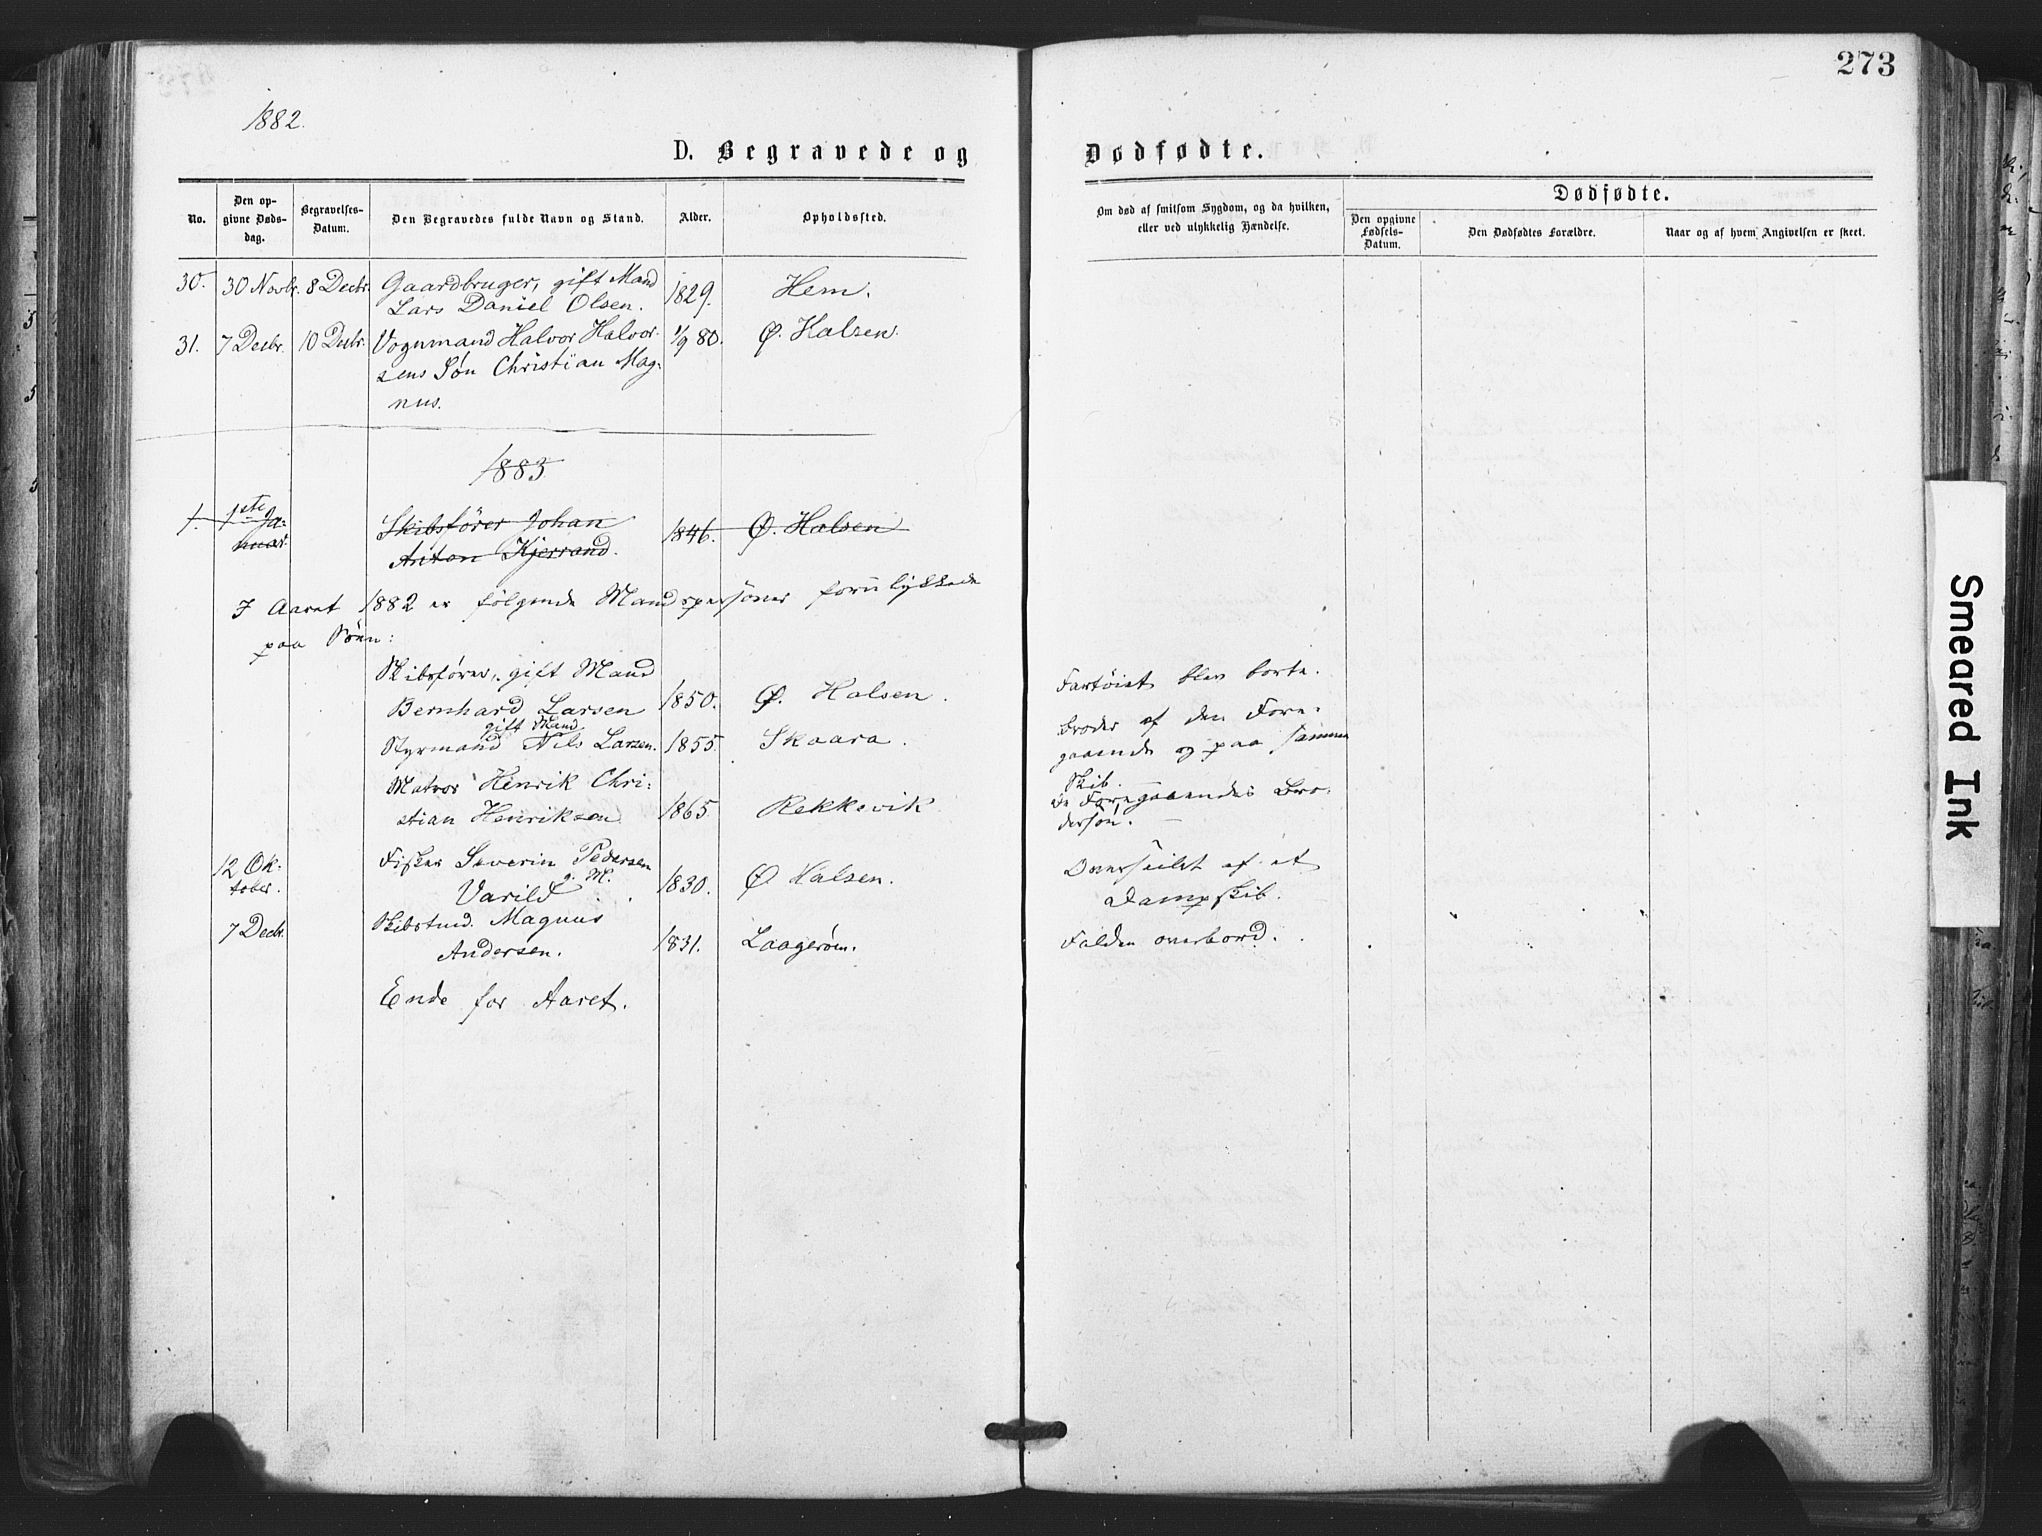 273
1882.
D. Begravede og
Dødfødte.
No.
Den op-
givne Døds-
dag.
Begravelses-
Datum.
Den Begravedes fulde Navn og Stand.
Alder.
Opholdssted.
Om død af smitsom Sygdom, og da hvilken,
eller ved ulykkelig Hændelse.
Dødfødte.
Den opgivne
Fødsels-
Datum.
Den Dødfødtes Forældre.
Naar og af hvem Angivelsen er skeet.
30. 30 Novbr. 8 Decbr. Gaardbruger, gift Mand 1829. Hem.
Lars Daniel Olsen.
31. 7 Decbr. 10 Decbr. Vognmand Halvor Halvor- 1/9 80. Ø. Halsen.
sens Søn Christian Mag-
nus.
1883
1. 1ste Ja- Skibsfører Johan 1846. Ø. Halsen
nuar. Anton Kjerrand.
I Aaret 1882 er følgende Mandspersoner forulykkede
paa Søen:
Skibsfører, gift Mand
Bernhard Larsen 1850. Ø. Halsen. Fartøiet blev borte.
gift Mand
Styrmand Nils Larsen. 1855. Skaara. Broder af den Fore-
gaaende og paa samme
Skib.
Matros Henrik Chri-
stian Henriksen 1865. Rekkevik De Foregaaendes Bro-
dersøn.
12 Ok- Fisker Severin Pedersen
tober. Varild g. M. 1830. Ø Halsen. Overseilet af et
Dampskib.
7 Decbr. Skibstmd. Magnus
Andersen. 1831. Laagerøen. Falden overbord.
Ende for Aaret.
Smeared Ink